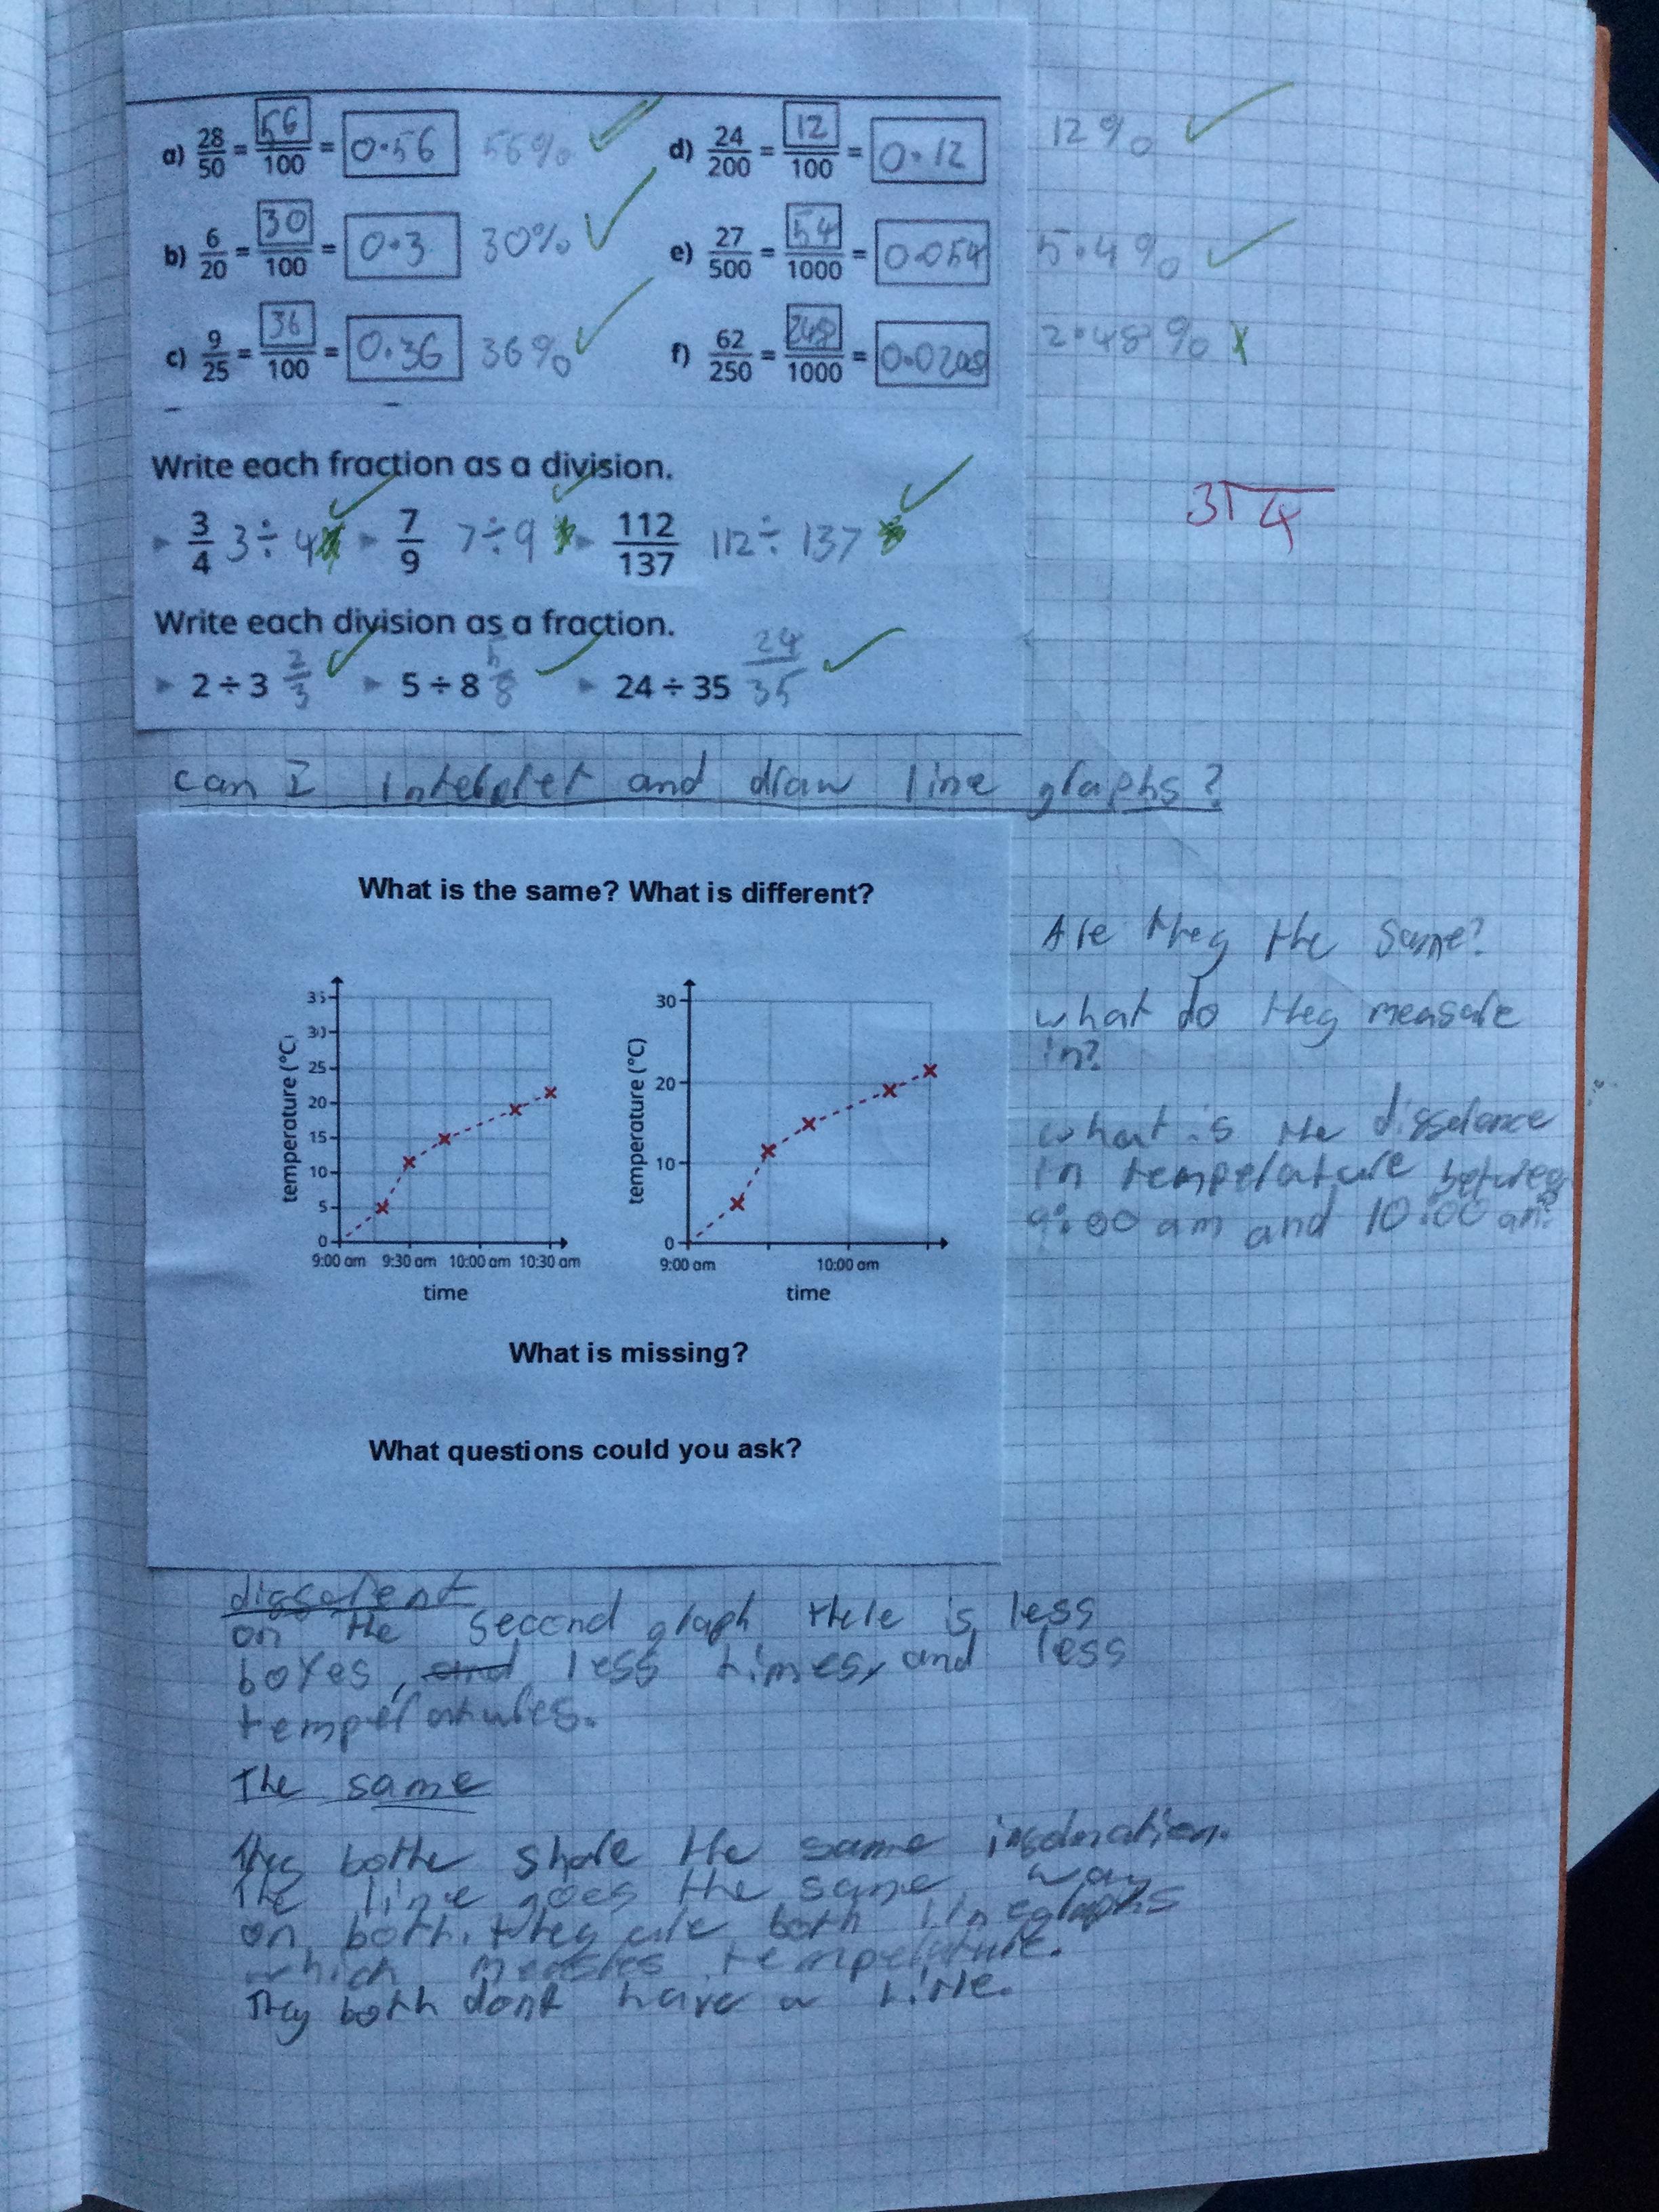 a) 28/50 = 56/100 = 0.56 56%
b) 6/20 = 30/100 = 0.3 30%
c) 9/25 = 36/100 = 0.36 36%
d) 24/200 = 12/100 = 0.12 12%
e) 27/500 = 54/1000 = 0.054 5.4%
f) 62/250 = 248/1000 = 2.48%
Write each fraction as a division.
3/4 3÷4 7/9 7÷9 112/137 112÷137
3 4
Write each division as a fraction.
2÷3 2/3 5÷8 5/8 24÷35 24/35
can I interpret and draw line graphs?
What is the same? What is different?
temperature (°C)
35
30
25
20
15
10
5
0
9:00 am 9:30 am 10:00 am 10:30 am
time
temperature (°C)
30
20
10
0
9:00 am 10:00 am
time
What is missing?
What questions could you ask?
Are they the same?
what do they measure
in?
what is the
in temperature between
9:00 am and 10:00 am.
on the second graph there is less
boxes, and less times, and less
temperatures.
The same
They bothe share the same
The line goes the same way
on both. they are both linegraphs
which temperature.
They both dont have a title.